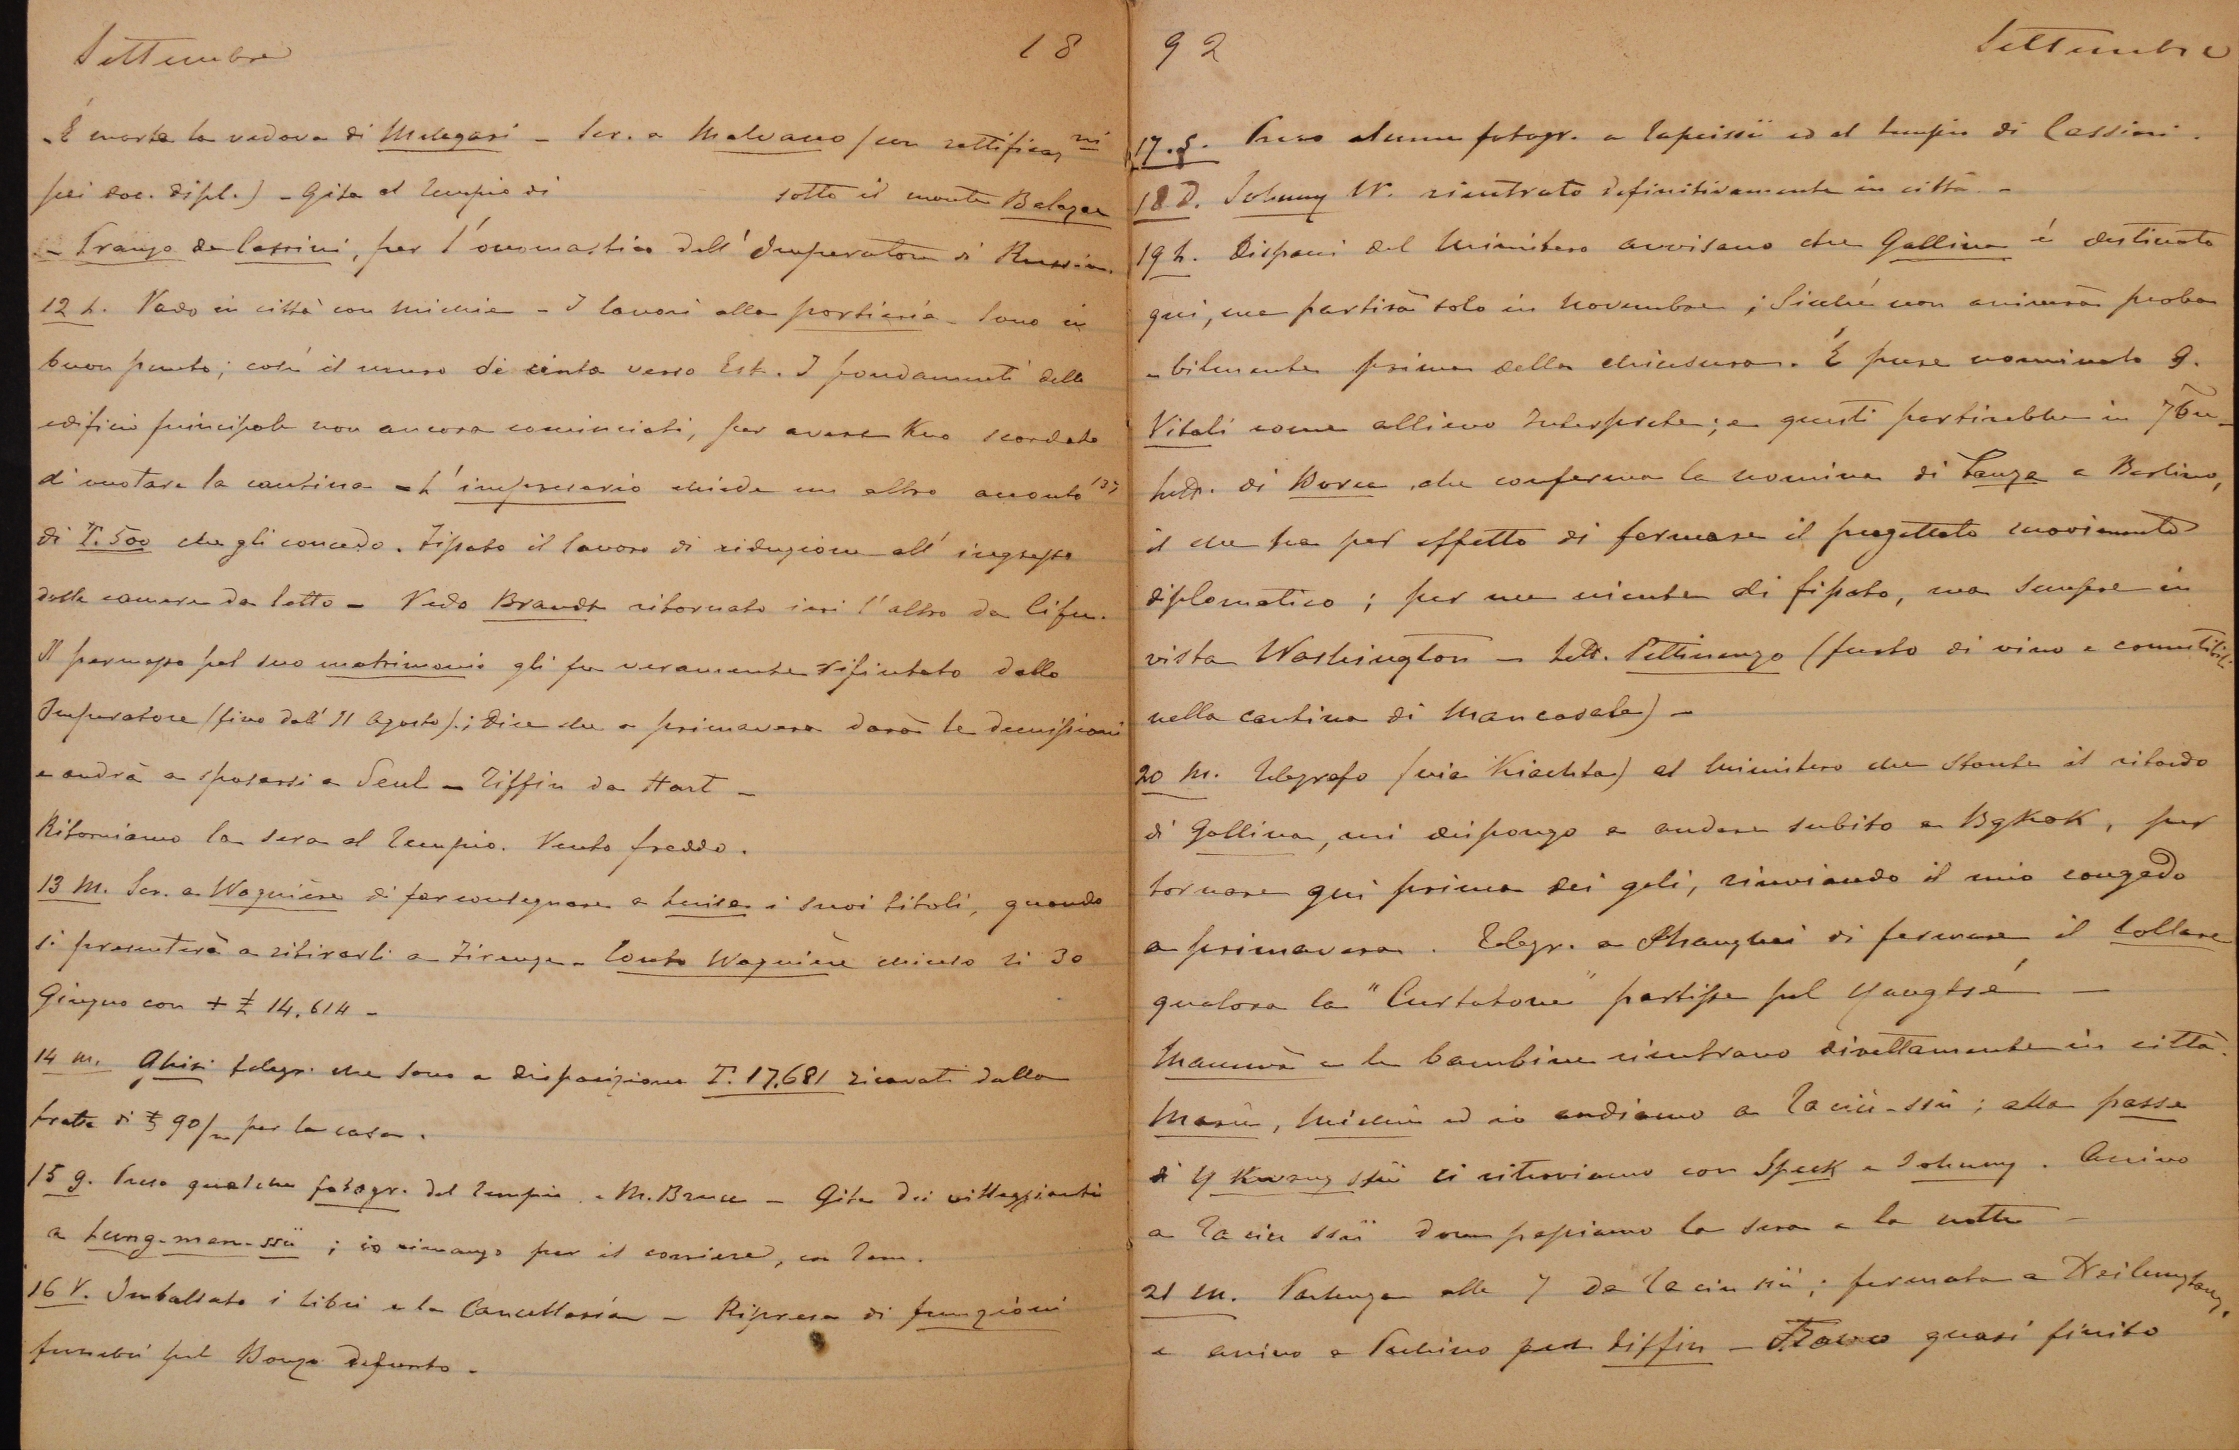 Settembre 18
- È morta la vedova di Melegari - Scr. a Malvano (con rettificaz.ni
pei doc. dipl.) - Gita al tempio di sotto il monte
- Pranzo da Cassini, per l'onomastico dell'Imperatore di Russia.
12 L. Vado in città con Michie - I lavori alla portieria sono in
buon punto; così il muro di cinta verso Est. I fondamenti dello
edificio principale non ancora cominciati, per avere Kuo scordato
di vuotare la cantina - L'impresario chiede un altro acconto
di T. 500 che gli concedo. Fissato il lavoro di riduzione all'ingresso
delle camere da letto - Vedo Brandt ritornato ieri l'altro da Cifu.
Il permesso pel suo matrimonio gli fu veramente rifiutato dallo
Imperatore (fino dall'11 Agosto); dice che a primavera darà le dimissioni
e andrà a sposarsi a Seul - Tiffin da Hart -
Ritorniamo la sera al tempio. Vento freddo.
13 M. Scr. a Wagnière di far consegnare a Luisa i suoi titoli, quando
si presenterà a ritirarli a Firenze - Conto Wagnière chiuso al 30
Giugno con + £ 14.614 -
14 M. Ghisi telegr. che sono a disposizione T. 17.681 ricavati dalla
tratta di £ 90/m per la casa.
15 G. Preso qualche fotogr. del tempio e M. Bruce - Gita dei villeggianti
a Lung-men-ssü; io rimango per il corriere, con Tom.
16 V. Imballato i libri e la Cancelleria - Ripresa di funzioni
funebri pel Bonzo defunto.
92 Settembre
17. S. Preso alcune fotogr. a Tapeissü ed al tempio di Cassini.
18 D. Johnny W. rientrato definitivamente in città. -
19 L. Dispacci del Ministero avvisano che Gallina è destinato
qui, ma partirà solo in Novembre; sicchè non arriverà proba
-bilmente prima della chiusura. È pure nominato G.
Vitali come allievo Interprete; e questi partirebbe in 7bre -
Lett. di che conferma la nomina di Lanza a Berlino,
il che ha per effetto di fermare il progettato movimento
diplomatico; per me niente di fissato, ma sempre in
vista Washington - Lett. Pettinengo (furto di vino e commestibili
nella cantina di Mancasale) -
20 M. Telegrafo (via Kiachta) al Ministero che stante il ritardo
di Gallina, mi dispongo a andare subito a Bgkok, per
tornare qui prima dei geli, rinviando il mio congedo
a primavera. Telegr. a Shanghai di fermare il Collare
qualora la "Curtatone" partisse pel Yangtsé -
Mammà e le bambine rientrano direttamente in città.
Maru, Michie ed io andiamo a Taciü-ssü; alla passe
di Y Kwang ssü ci ritroviamo con Speck e Johnny. Arrivo
a Taciu ssü dove passiamo la sera e la notte -
21 M. Partenza alle 7 da Taciu ssü; fermata a
e arrivo a Pechino per tiffin - Trovo quasi finito